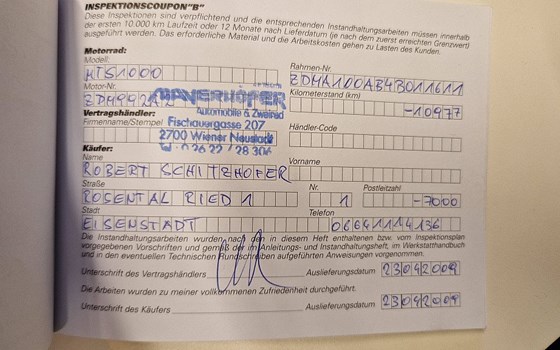 INSPEKTIONSCOUPON"B"
Diese Inspektionen sind verpflichtend und die entsprechenden Instandhaltungsarbeiten müssen innerhalb
der ersten 10.000 km Laufzeit oder 12 Monate nach Lieferdatum (je nach dem zuerst erreichten Grenzwert)
ausgeführt werden. Das erforderliche Material und die Arbeitskosten gehen zu Lasten des Kunden.
Motorrad:
Modell: Rahmen-Nr.
MTS1000 ZDMA100AB4B011611
Motor-Nr. Kilometerstand (km)
ZDM992A2 -10977
MAYERHOFER
Automobile & Zweirad
Vertragshändler:
Firmenname/Stempel Fischauergasse 207 Händler-Code
2700 Wiener Neustadt
0 26 22 / 28 306
Käufer:
Name Vorname
ROBERT SCHITZHOFER
Straße Nr. Postleitzahl
ROSENTAL RIED 1 1 -7000
Stadt Telefon
EISENSTADT 06641114136
Die Instandhaltungsarbeiten wurden nach den in diesem Heft enthaltenen bzw. vom Inspektionsplan
vorgegebenen Vorschriften und gemäß der im Anleitungs- und Instandhaltungsheft, im Werkstatthandbuch
und in den eventuellen Technischen Rundschreiben aufgeführten Anweisungen vorgenommen.
Unterschrift des Vertragshändlers Auslieferungsdatum 23042009
Die Arbeiten wurden zu meiner vollkommenen Zufriedenheit durchgeführt.
Unterschrift des Käufers Auslieferungsdatum 23042009